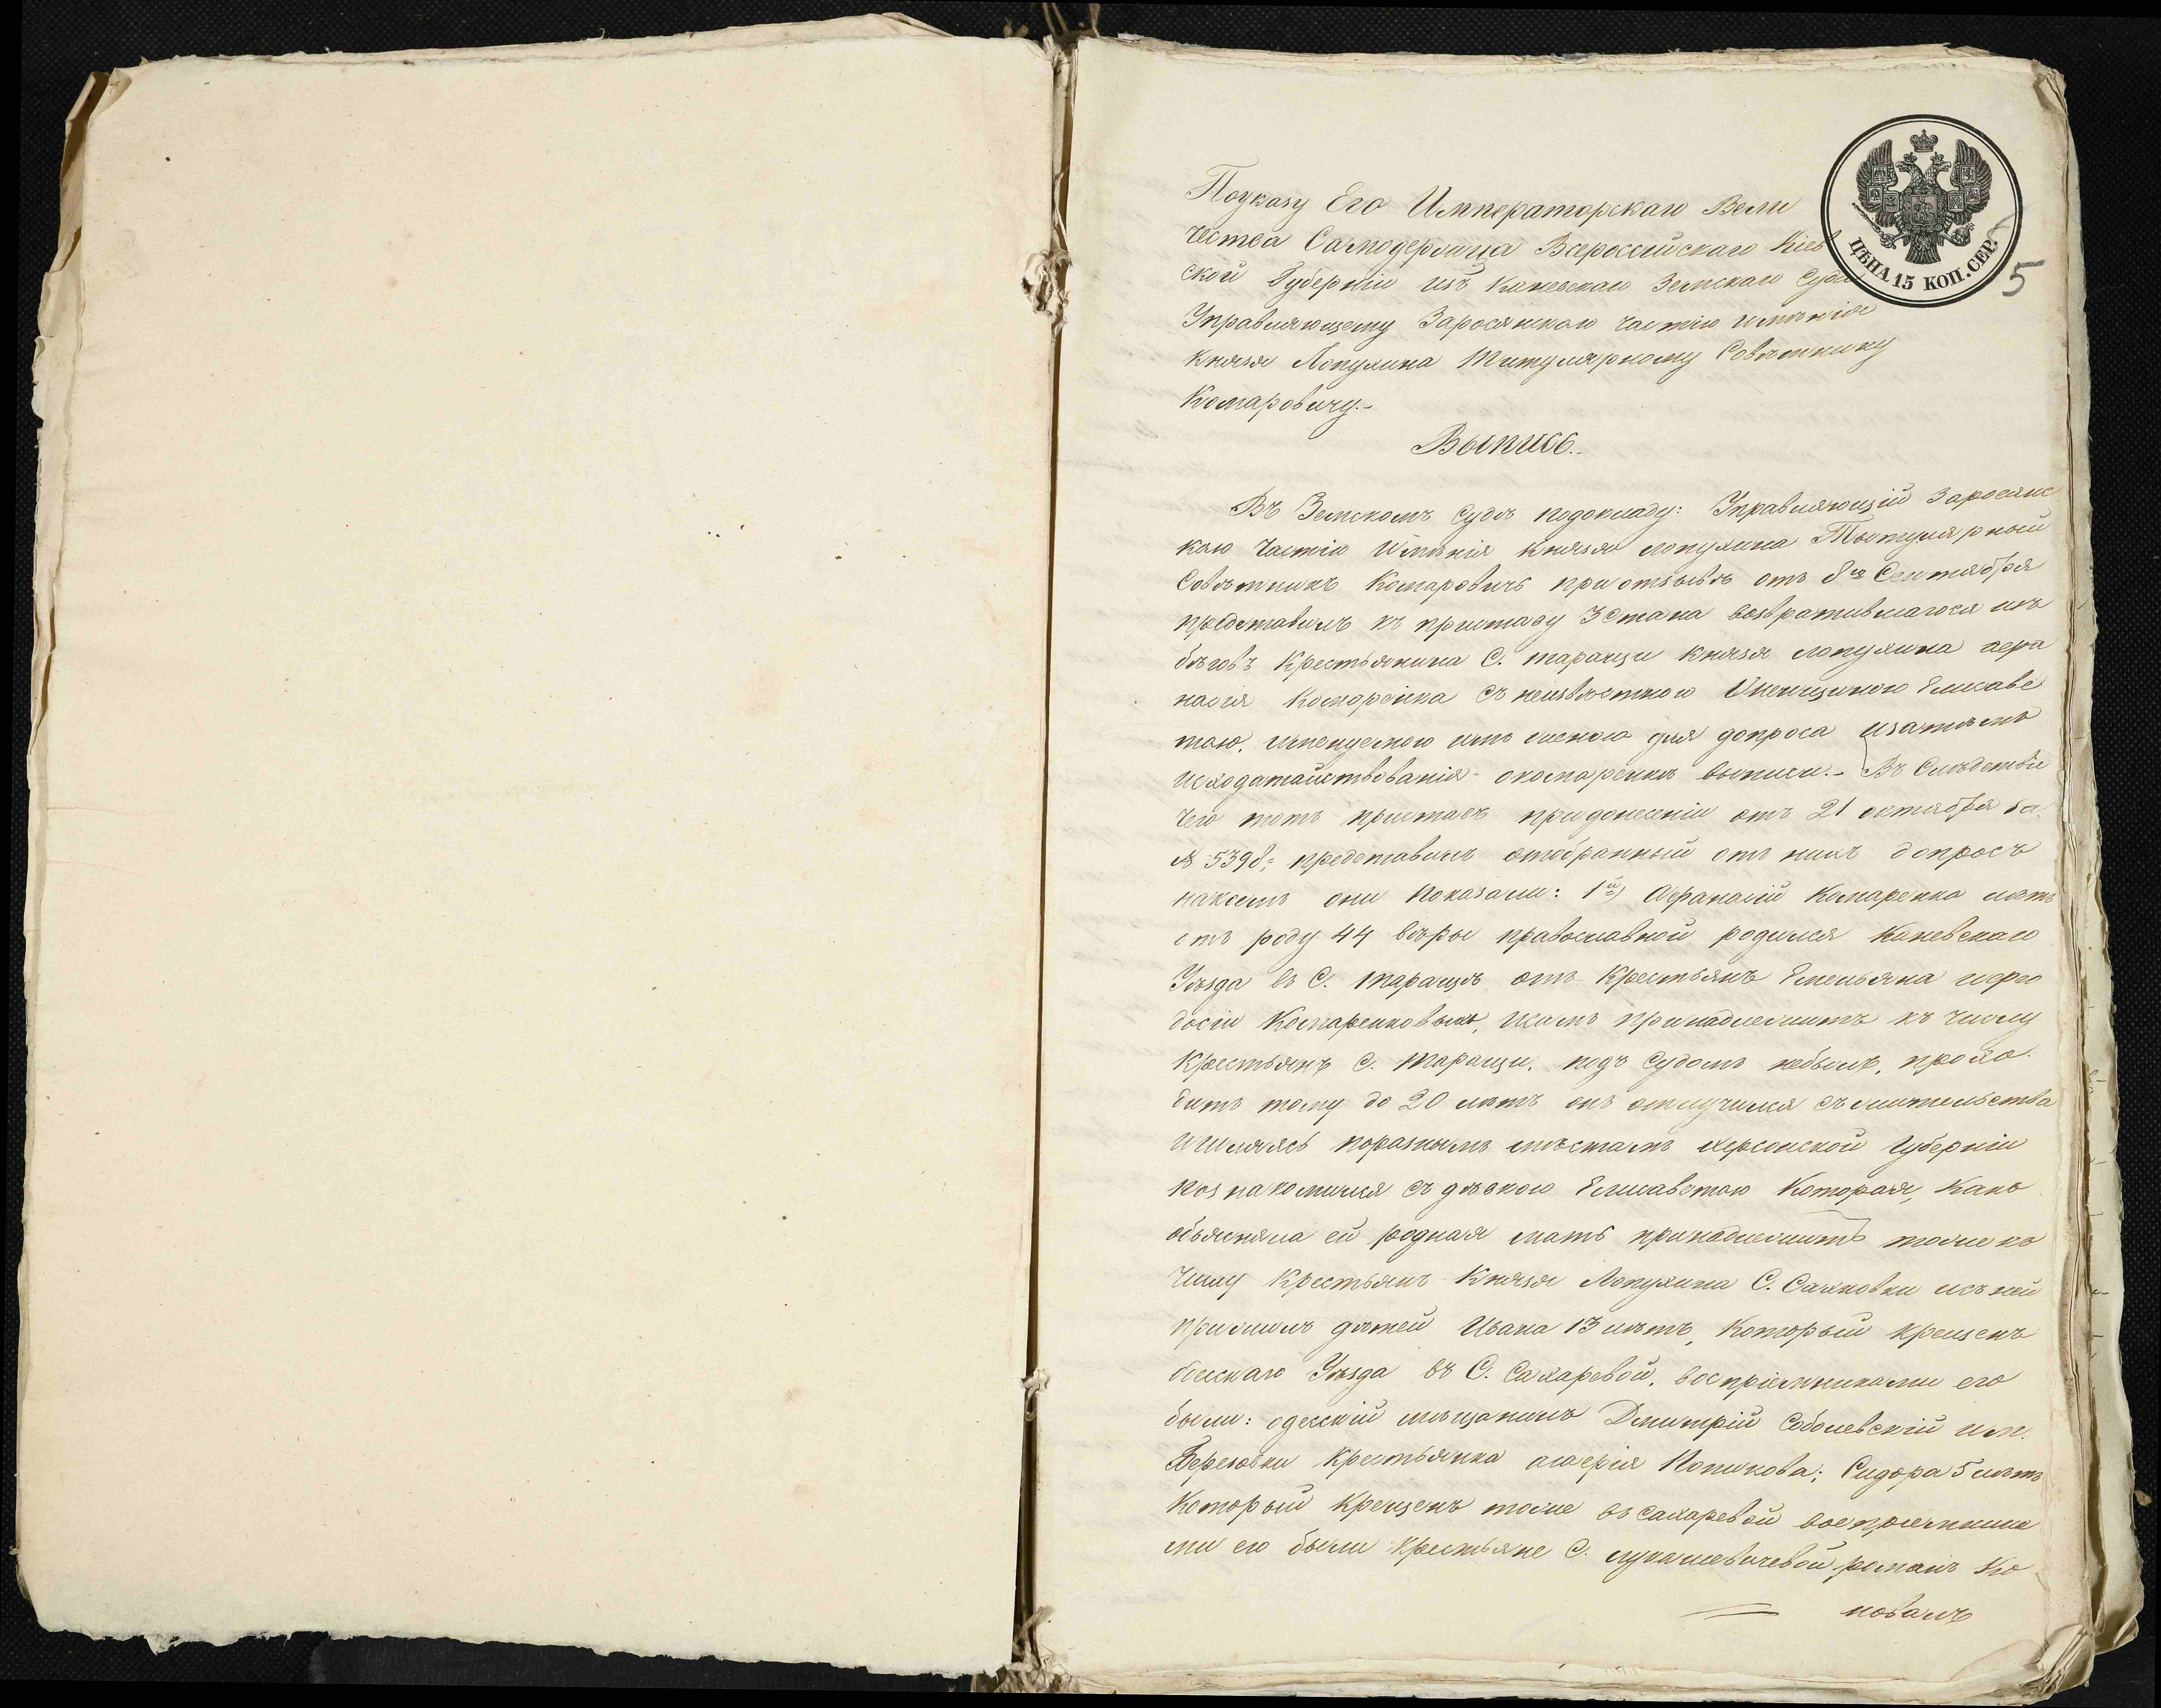 Поуказу Его Императорскаго Вели
чества Самодержца Всероссійскаго Кіев
ской Губерніи изъ Каневскаго Земскаго Суда
ЦѢНА 15 КОП. СЕР.
5
Управляющему Заросянскою частію имѣнія
Князя Лопухина Титулярному Совѣтнику
Комаровичу.-
Выпись.
Въ Земскомъ Судѣ подокладу: Управляющій Заросянс
кою Частію Имѣнія Князя лопухина Титулярный
Совѣтникъ Комаровичъ при отзывѣ отъ 8го Сентября
представилъ къ приставу 3 Стана возвратившагося изъ
бѣговъ Крестьянина С. таращи Князя лопухина Афа
насія Комаренка съ неизвѣстною Женщиною Елисаве
тою, именуемою имъ женою для допроса изатѣмъ
исходатайствованія окомаренкѣ выписи.- Въ Слѣдствіе
чего тотъ приставъ придонесеніи отъ 21 октября за
№ 5398; представилъ отобранный отъ нихъ допросъ
накоемъ они показали: 1й) Афанасій Комаренко лѣтъ
отъ роду 44 вѣры православной родился Каневскаго
Уѣзда въ С. таращѣ отъ Крестьянъ Емельяна и Фео
досіи Комаренковыхъ, исамъ принадлежитъ къ числу
Крестьянъ С. таращи, подъ Судомъ небылъ, прохо
дитъ тому до 20 лѣтъ онъ отлучился съ жительства
ишляясь поразнымъ мѣстамъ херсонской Губерніи
познакомился съ дѣвкою Елисаветою Которая, какъ
объясняла ей родная мать принадлежитъ тоже къ
числу Крестьянъ Князя Лопухина С. Сахновки исъ ней
прижилъ дѣтей Ивана 13 лѣтъ, Который крещенъ
Уѣзда въ С. Сахаревой, воспріемниками его
были: одесскій мѣщанинъ Дмитрій Соболевскій и м.
Березовки Крестьянка Попикова; Сидора 5 лѣтъ
Который крещенъ тоже въ Сахаревой воспріемника
ми его были Крестьяне С. лукашевичевой романъ Ко
новалъ